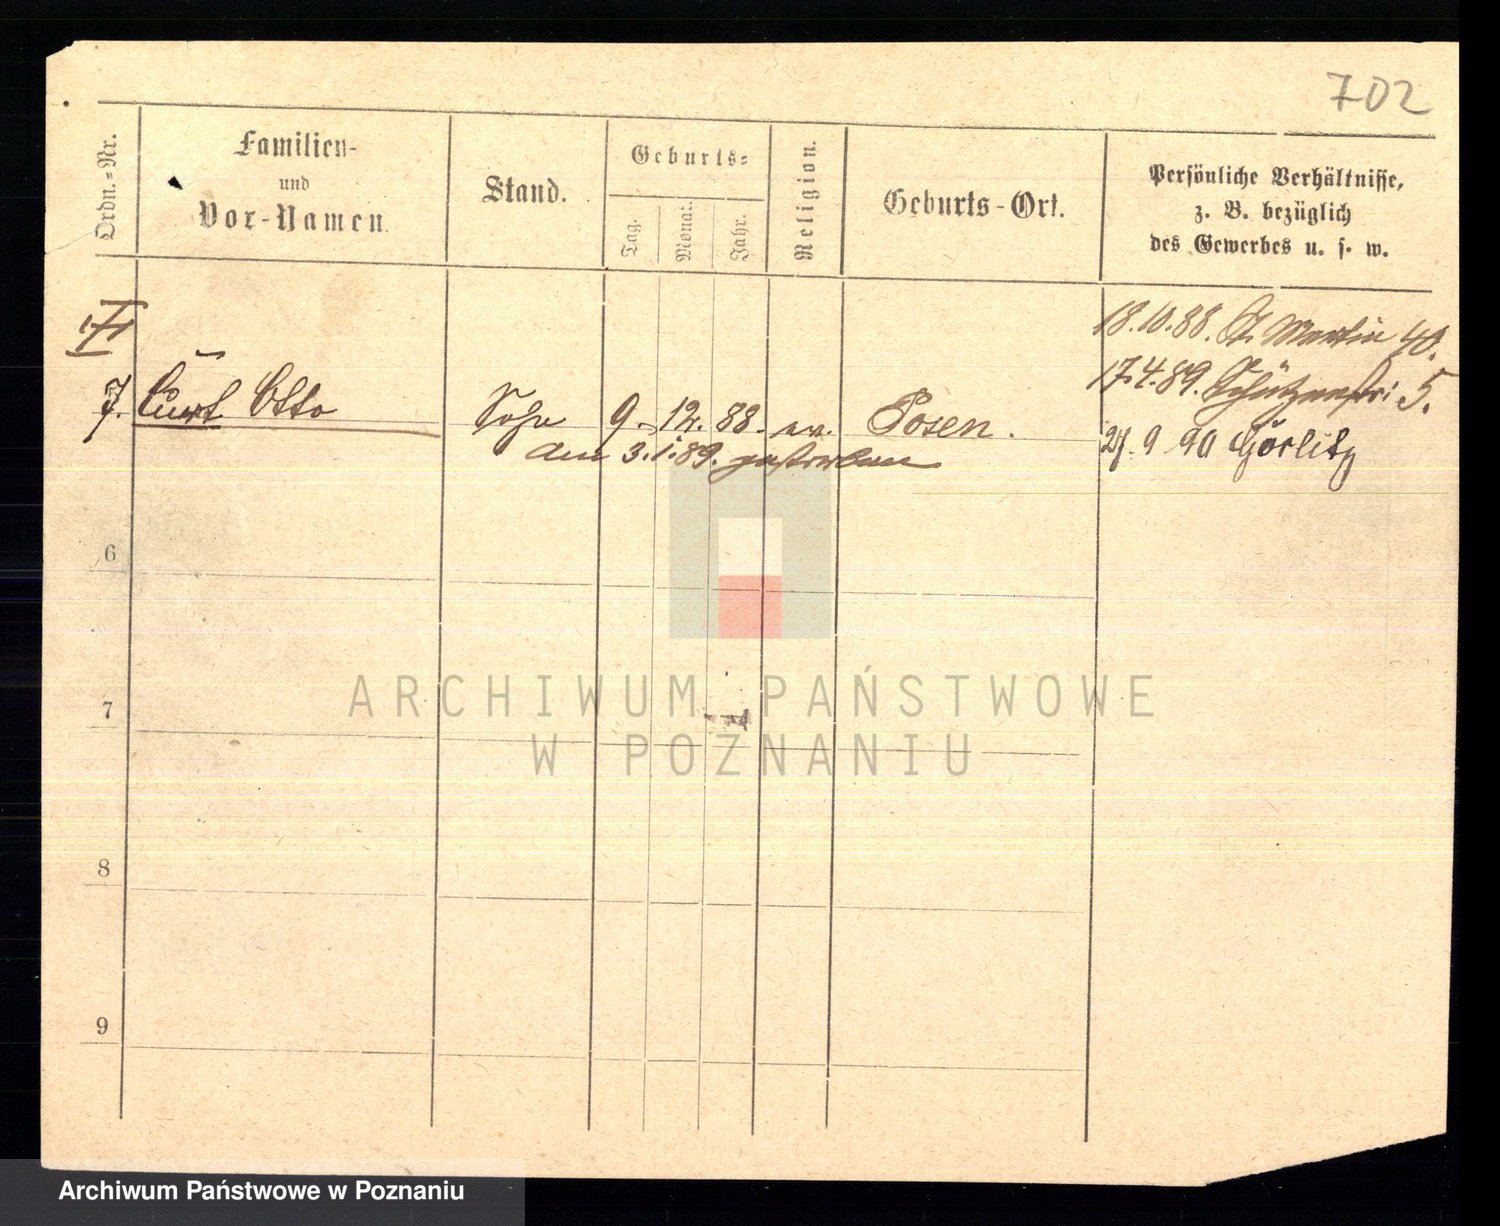 702
Ordn.-Nr.
Familien-
und
Vor-Namen.
Stand.
Geburts-
Tag.
Monat.
Jahr.
Religion.
Geburts-Ort.
Persönliche Verhältnisse,
z. B. bezüglich
des Gewerbes u. s. w.
18.10.88. St. Martin 40.
17.4.89. Schützenstr. 5.
9 90 Görlitz
7. Curt Otto Sohn 9. 12. 88. ev. Posen.
am 3.1.89. gestorben
6
7
8
9
ARCHIWUM PAŃSTWOWE
W POZNANIU
Archiwum Państwowe w Poznaniu